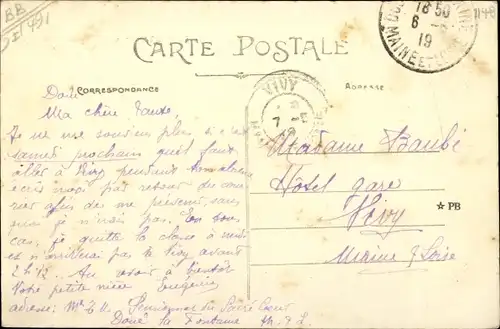 BB
I 491
1148
18 30
6
19
MAINE ET LOIRE
CARTE POSTALE
CORRESPONDANCE
ADRESSE
VIVY
7 - 5
Doué
Ma chère Tante,
Je ne me souviens plus si c'est
samedi prochain qu'il faut
aller à Vivy pendant
écris moi par retour de cour
rier afin de me prévenir, sans
quoi je n'irais pas. En tous
cas, je quitte la classe à midi
et n'arriverai pas à Vivy avant
2h 1/2. Au revoir à bientôt
Votre petite nièce Eugénie
adresse: Pensionnat du Sacré Coeur
Doué la Fontaine M. & L.
Madame Baubé
Hôtel gare
Vivy
Maine & Loire
☆ PB